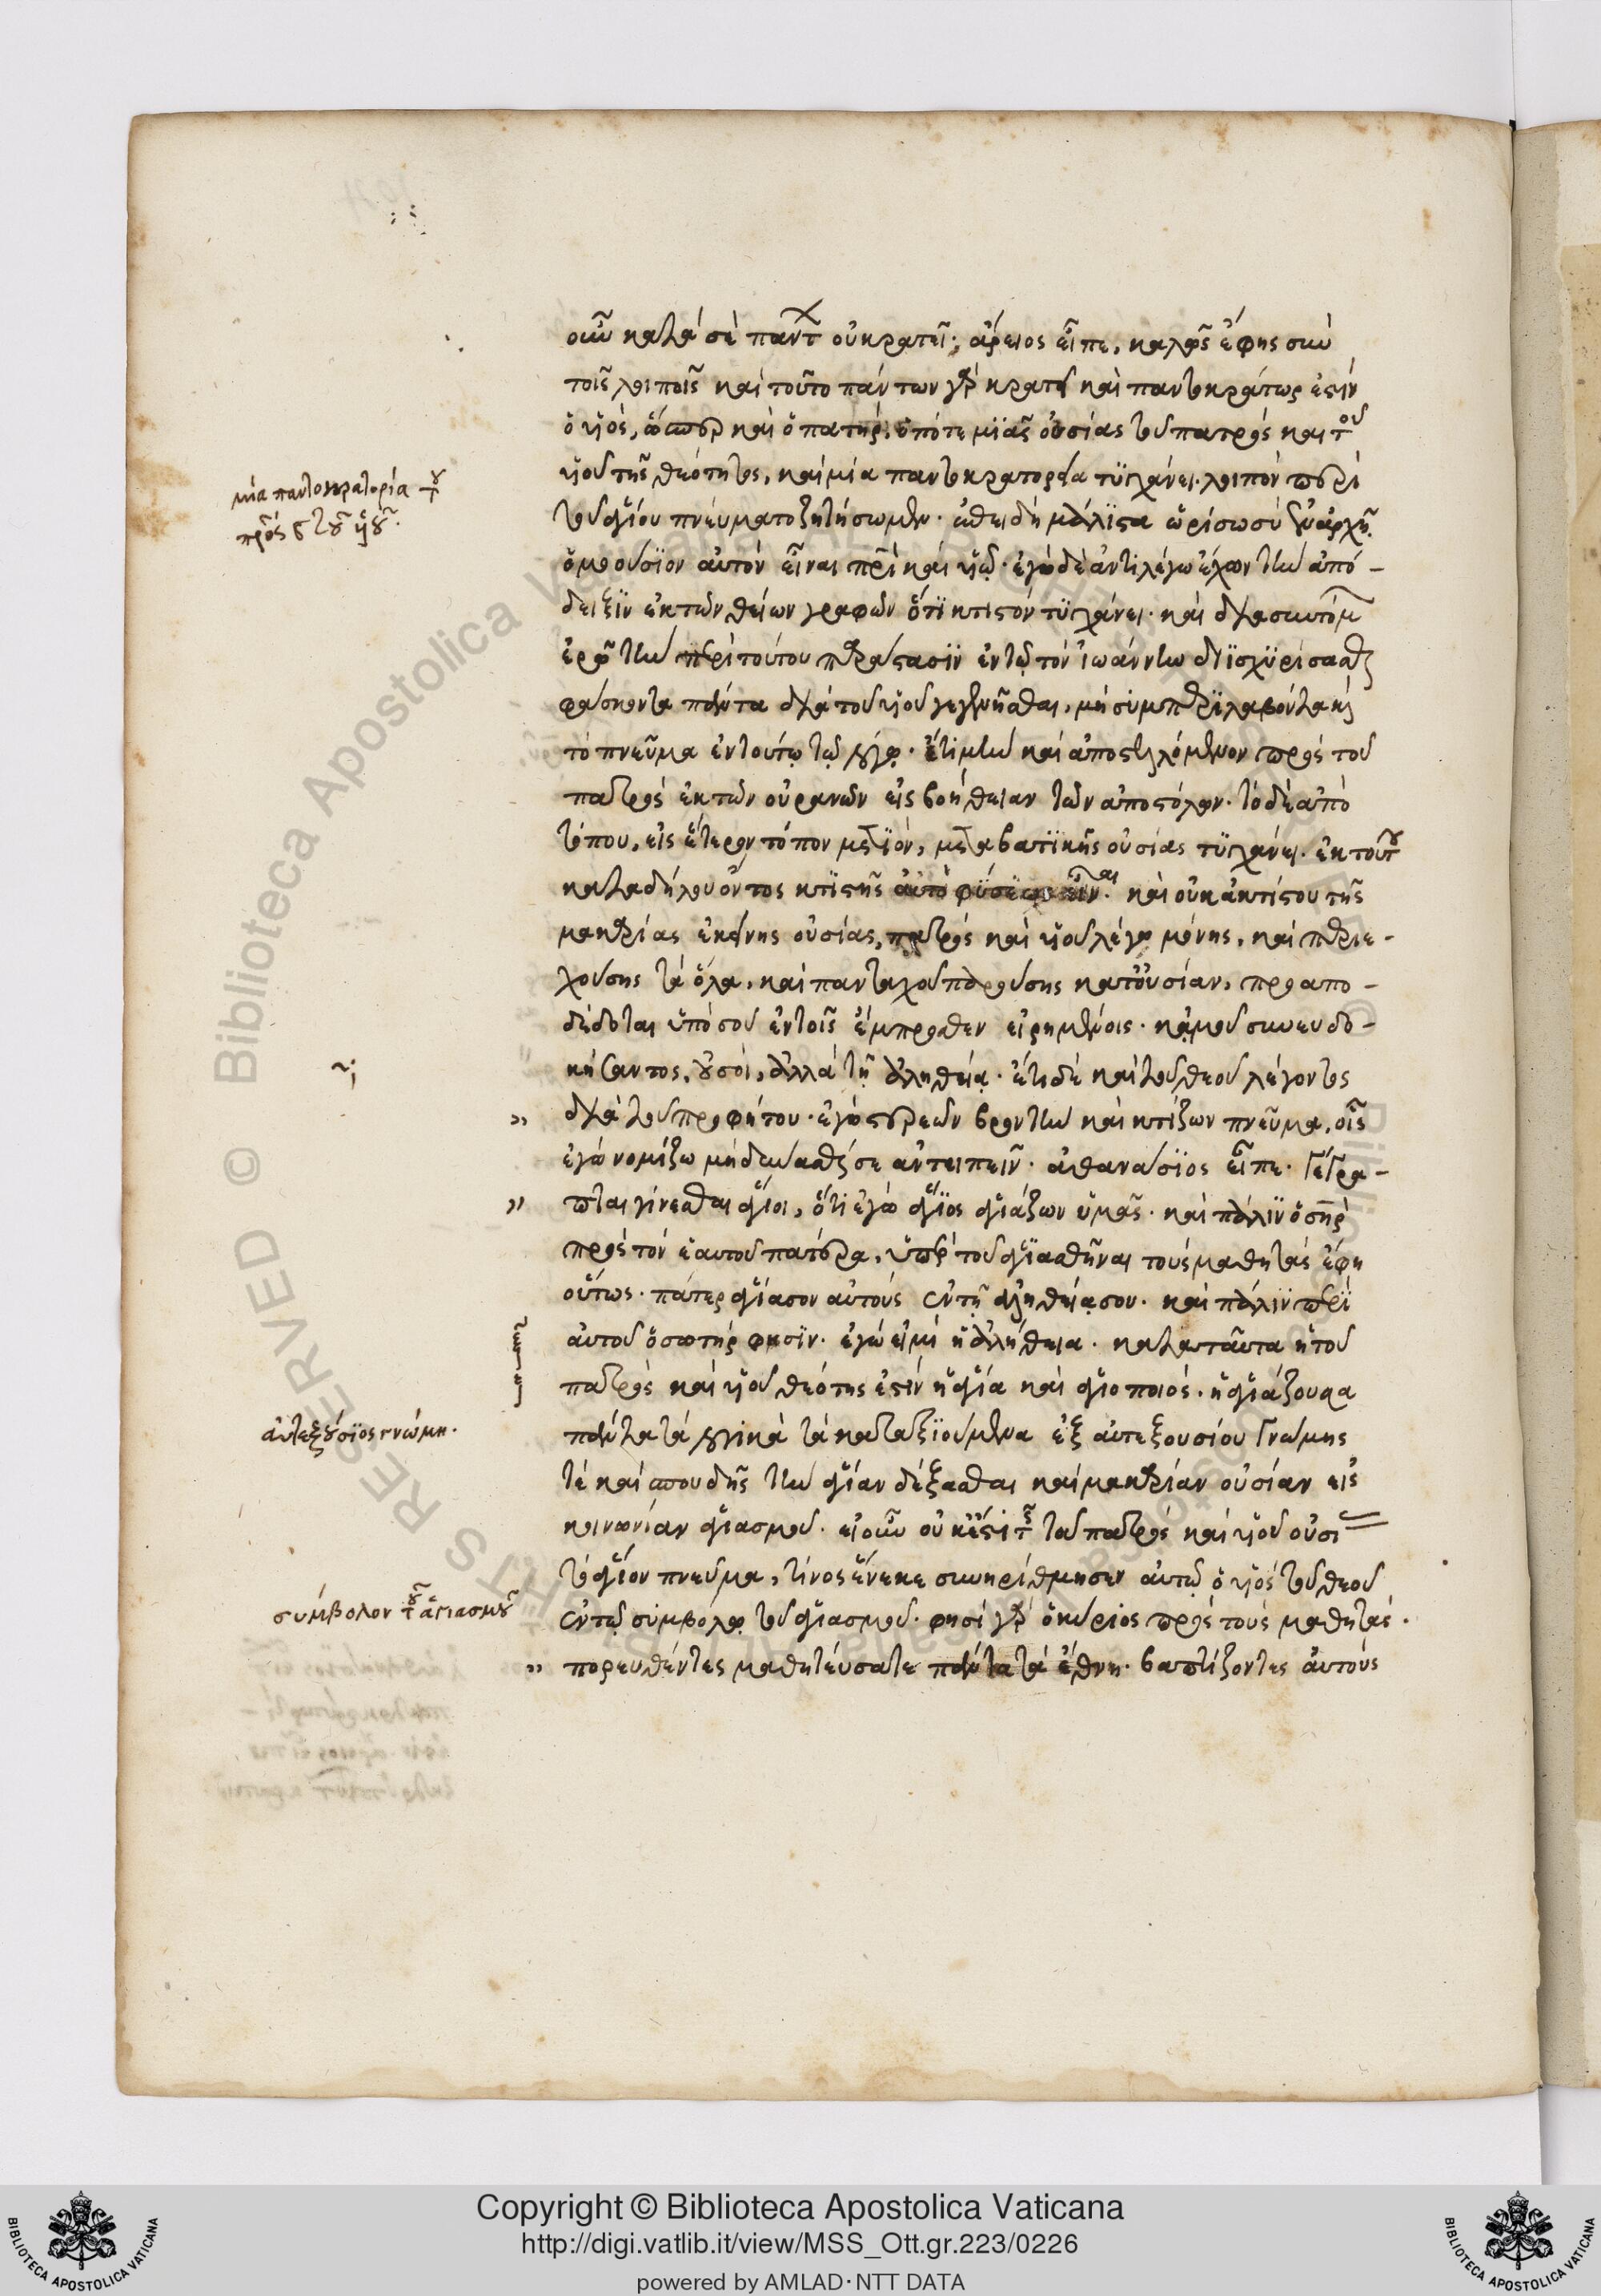 οὖν κατὰ σὲ πάντ οὐ κρατεῖ· ἄρειος εἶπε, καλῶς ἔφης σὺν
τοῖς λοιποῖς καὶ τοῦτο πάντων γὰρ κρατεῖ καὶ παντοκράτωρ ἐστὶν
ὁ υἱὸς, ὥσπερ καὶ ὁ πατὴρ. ὁπότε μιᾶς οὐσίας τοῦ πατρὸς καὶ τοῦ
υἱοῦ τῆς θεότητος, καὶ μία παντοκρατορία τυγχάνει. λοιπὸν περὶ
τοῦ ἁγίου πνεύματος ζητήσωμεν· ἐπειδὴ μάλιστα ὥρισω σὺ ἐν ἀρχῇ
ὁμοούσιον αὐτὸν εἶναι πρὶ καὶ υἱῷ· ἐγὼ δὲ ἀντιλέγω ἔχων τὴν ἀπό-
δειξιν ἐκ τῶν θείων γραφῶν ὅτι κτιστὸν τυγχάνει· καὶ διὰ συντόμ
ἐρῶ τὴν περὶ τούτου παράστασιν ἐν τῷ τὸν ἰωάννην διϊσχυρίσασθαι
φάσκοντα πάντα διὰ τοῦ υἱοῦ γεγενῆσθαι, μὴ συμπεριλαβόντα καὶ
τὸ πνεῦμα ἐν τούτῳ τῷ λόγῳ· ἔτι μὴν καὶ ἀποστελλόμενον πρὸς τοῦ
πατρὸς ἐκ τῶν οὐρανῶν εἰς βοήθειαν τῶν ἀποστόλων· τὸ δὲ ἀπὸ
τόπου, εἰς ἕτερον τόπον μετιὸν, μεταβατικῆς οὐσίας τυγχάνει. ἐκ τούτου
καταδήλου ὄντος κτιστῆς αὐτὸ φύσεως εἶναι· καὶ οὐκ ἀκτίστου τῆς
μακαρίας ἐκείνης οὐσίας, πατρὸς καὶ υἱοῦ λέγω μόνης, καὶ περιε-
χούσης τὰ ὅλα, καὶ πανταχοῦ παρούσης κατ οὐσίαν, προαπο-
δέδοται ὑπὸ σοῦ ἐν τοῖς ἔμπροσθεν εἰρημένοις· κἀμοῦ συνευδο-
κήσαντος, οὐ σοὶ, ἀλλὰ τῇ ἀληθείᾳ· ἔτι δὲ καὶ τοῦ θεοῦ λέγοντος
» διὰ τοῦ προφήτου· ἐγὼ στερεῶν βροντὴν καὶ κτίζων πνεῦμα, οἷς
ἐγὼ νομίζω μὴ δύνασθαί σε ἀντειπεῖν· ἀθανάσιος εἶπε· γέγρα-
» πται γίνεσθαι ἅγιοι, ὅτι ἐγὼ ἅγιος ἁγιάζων ὑμᾶς· καὶ πάλιν ὁ σηρ
πρὸς τὸν ἑαυτοῦ πατέρα, ὑπὲρ τοῦ ἁγιασθῆναι τοὺς μαθητὰς ἔφη
οὕτως· πάτερ ἁγίασον αὐτοὺς ἐν τῇ ἀληθείᾳ σου· καὶ πάλιν περὶ
αὐτοῦ ὁ σωτήρ φησιν· ἐγώ εἰμὶ ἡ ἀλήθεια· κατὰ ταῦτα ἡ τοῦ
πατρὸς καὶ υἱοῦ θεότης ἐστὶν ἡ ἁγία καὶ ἁγιοποιός· ἡ ἁγιάζουσα
πάντα τὰ λογικὰ τὰ καταξιούμενα ἐξ αὐτεξουσίου γνώμης
τὲ καὶ σπουδῆς τὴν ἁγίαν δέξασθαι καὶ μακαρίαν οὐσίαν εἰς
κοινωνίαν ἁγιασμοῦ· εἰ οὖν οὐκ ἔστι τῆς τοῦ πατρὸς καὶ υἱοῦ οὐσι
τὸ ἅγιον πνεῦμα, τίνος ἕνεκε συνηρίθμησεν αὐτῷ ὁ υἱὸς τοῦ θεοῦ
ἐν τῷ συμβόλῳ τοῦ ἁγιασμοῦ· φησὶ γὰρ ὁ κύριος πρὸς τοὺς μαθητάς·
» πορευθέντες μαθητεύσατε πάντα τὰ ἔθνη· βαπτίζοντες αὐτοὺς
μία παντοκρατορία τοῦ
πρὸς τοῦ υἱοῦ.
αὐτεξούσιος γνώμη.
σύμβολον τοῦ ἁγιασμοῦ
Copyright © Biblioteca Apostolica Vaticana
http://digi.vatlib.it/view/MSS_Ott.gr.223/0226
powered by AMLAD·NTT DATA
BIBLIOTECA APOSTOLICA VATICANA
BIBLIOTECA APOSTOLICA VATICANA